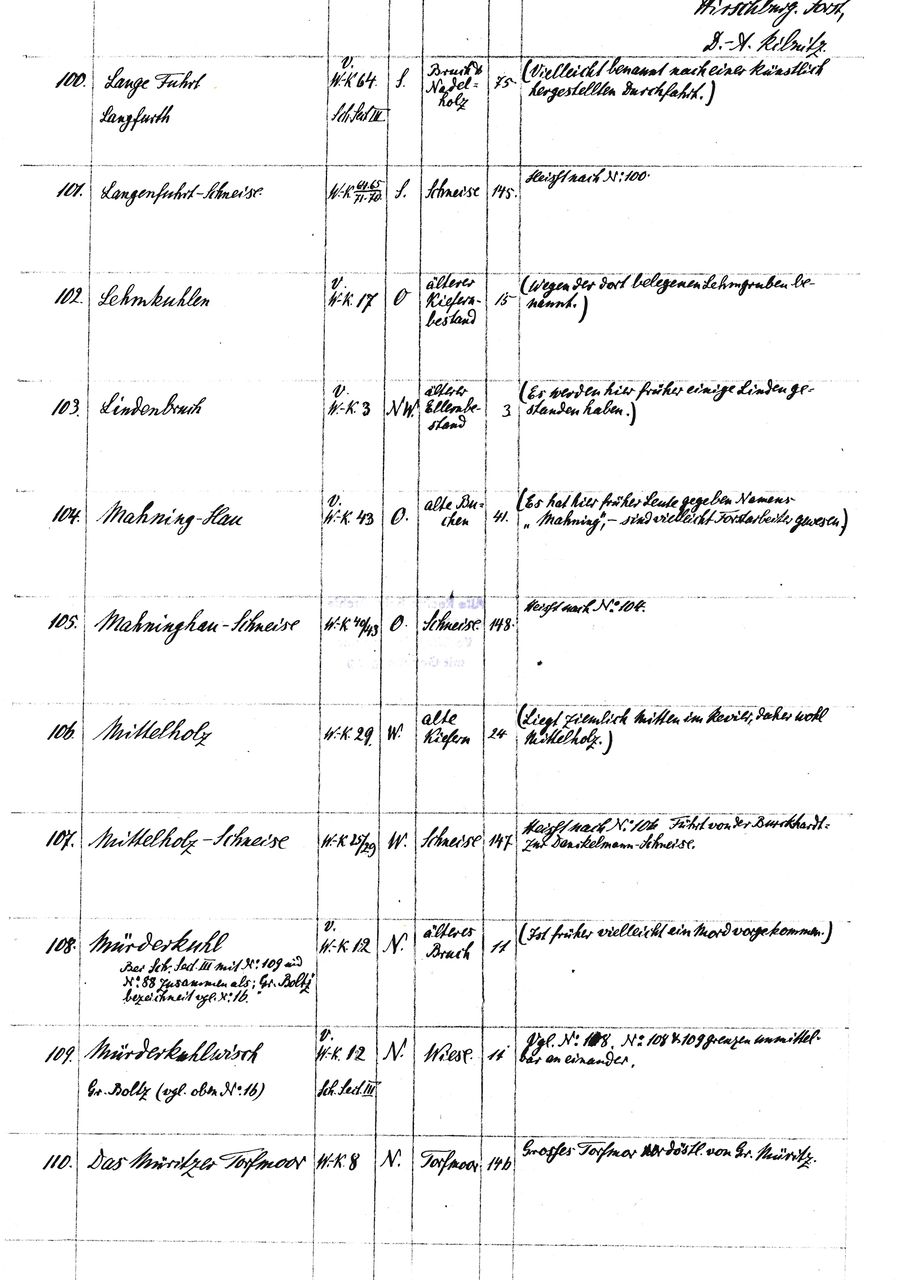 Hirschburg. Forst,
D.-A. Ribnitz.
100. Lange Fuhrt V. W-K 64 S. Bruch & Nadel= holz 75 (Vielleicht benannt nach einer künstlich
hergestellten Durchfahrt.)
Langfurth Sch. Sect III
101. Langenfuhrt-Schneise. W-K 64.65/71.70. S. Schneise 145. Heisst nach N: 100.
102. Lehmkuhlen V. W-K 17 O älterer Kiefern- bestand 15 (Wegen der dort belegenen Lehmgruben be-
nannt.)
103. Lindenbruch V. W-K 3 NW. älterer Ellernbe- stand 3 (Es werden hier früher einige Linden ge-
standen haben.)
104. Mahning-Hau V. W-K 43 O. alte Bu= chen 41. (Es hat hier früher Leute gegeben Namens
„Mahning", – sind vielleicht Forstarbeiter gewesen.)
105. Mahninghau-Schneise W-K 40/43 O. Schneise. 148. Heisst nach N:o 104.
106. Mittelholz W-K 29. W. alte Kiefern 24 (Liegt ziemlich mitten im Revier, daher wohl
Mittelholz.)
107. Mittelholz-Schneise W-K 25/29 W. Schneise 147 Heisst nach N:o 106. Führt von der Burckhardt=
zur Danckelmann-Schneise.
108. Mürderkuhl V. W-K 12 N. älteres Bruch 11 (Ist früher vielleicht ein Mord vorgekommen.)
Bei Sch. Sect. III mit N:o 109 und
N:o 88 zusammen als „Gr. Boltz"
bezeichnet vgl. N:o 16.
109. Mürderkuhlwisch V. W-K 12 N. Wiese. 11 Vgl. N:o 108. N:o 108 & 109 grenzen unmittel-
bar an einander.
Gr. Boltz (vgl. oben N:o 16) Sch. Sect. III
110. Das Müritzer Torfmoor W-K 8 N. Torfmoor 146 Grosses Torfmor nordöstl. von Gr. Müritz.